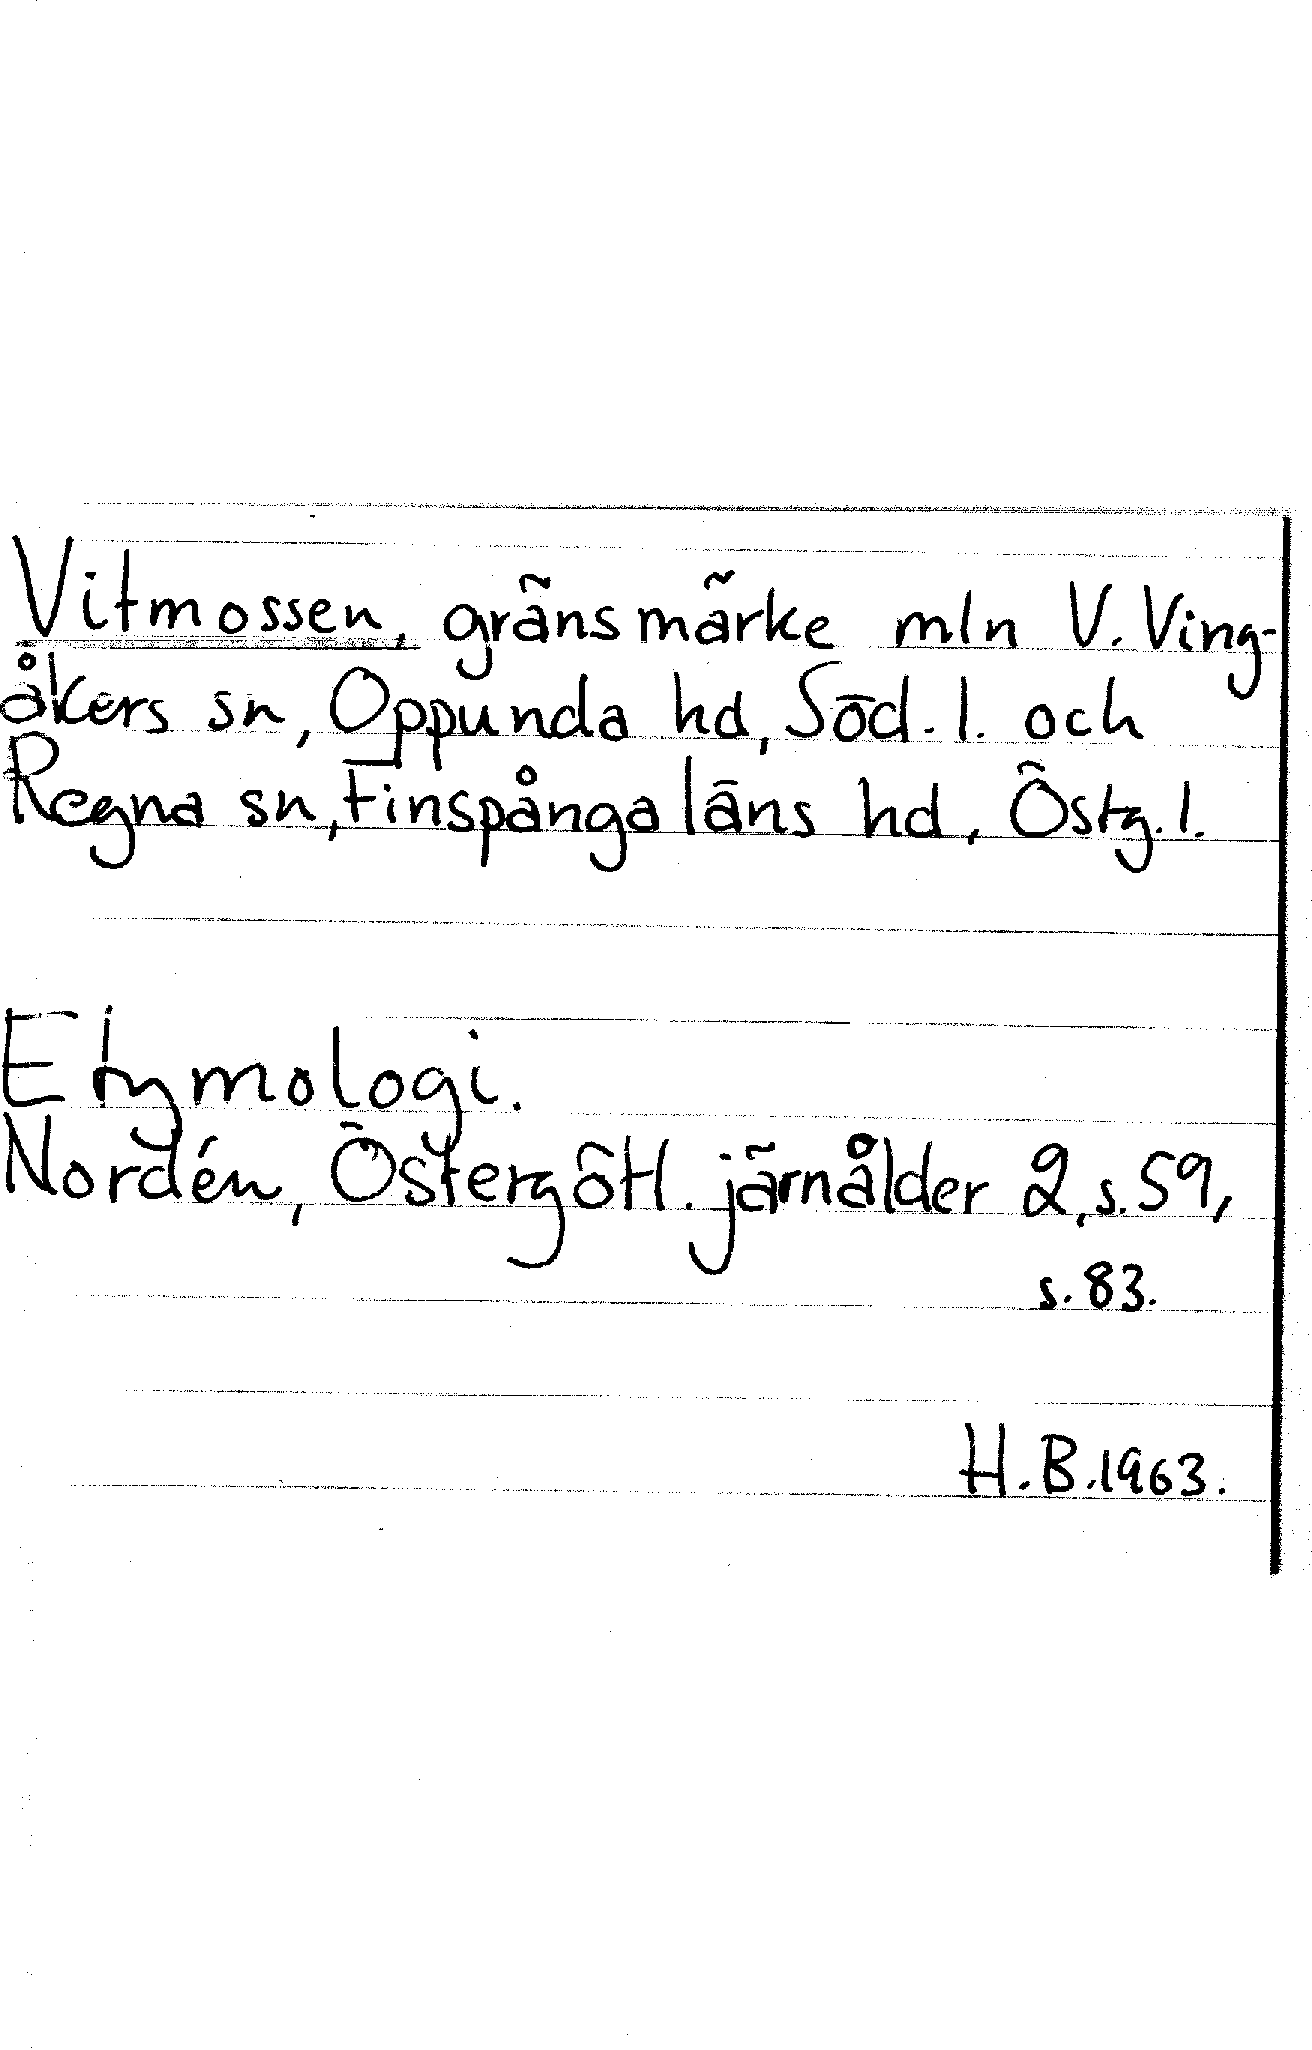 Vitmossen, gränsmärke mln V. Ving-
åkers sn, Oppunda hd, Söd. l. och
Regna sn, Finspånga läns hd, Östg. l.
Etymologi.
Nordén, Östergötl. järnålder 2, s. 59,
s. 83.
H.B. 1963.